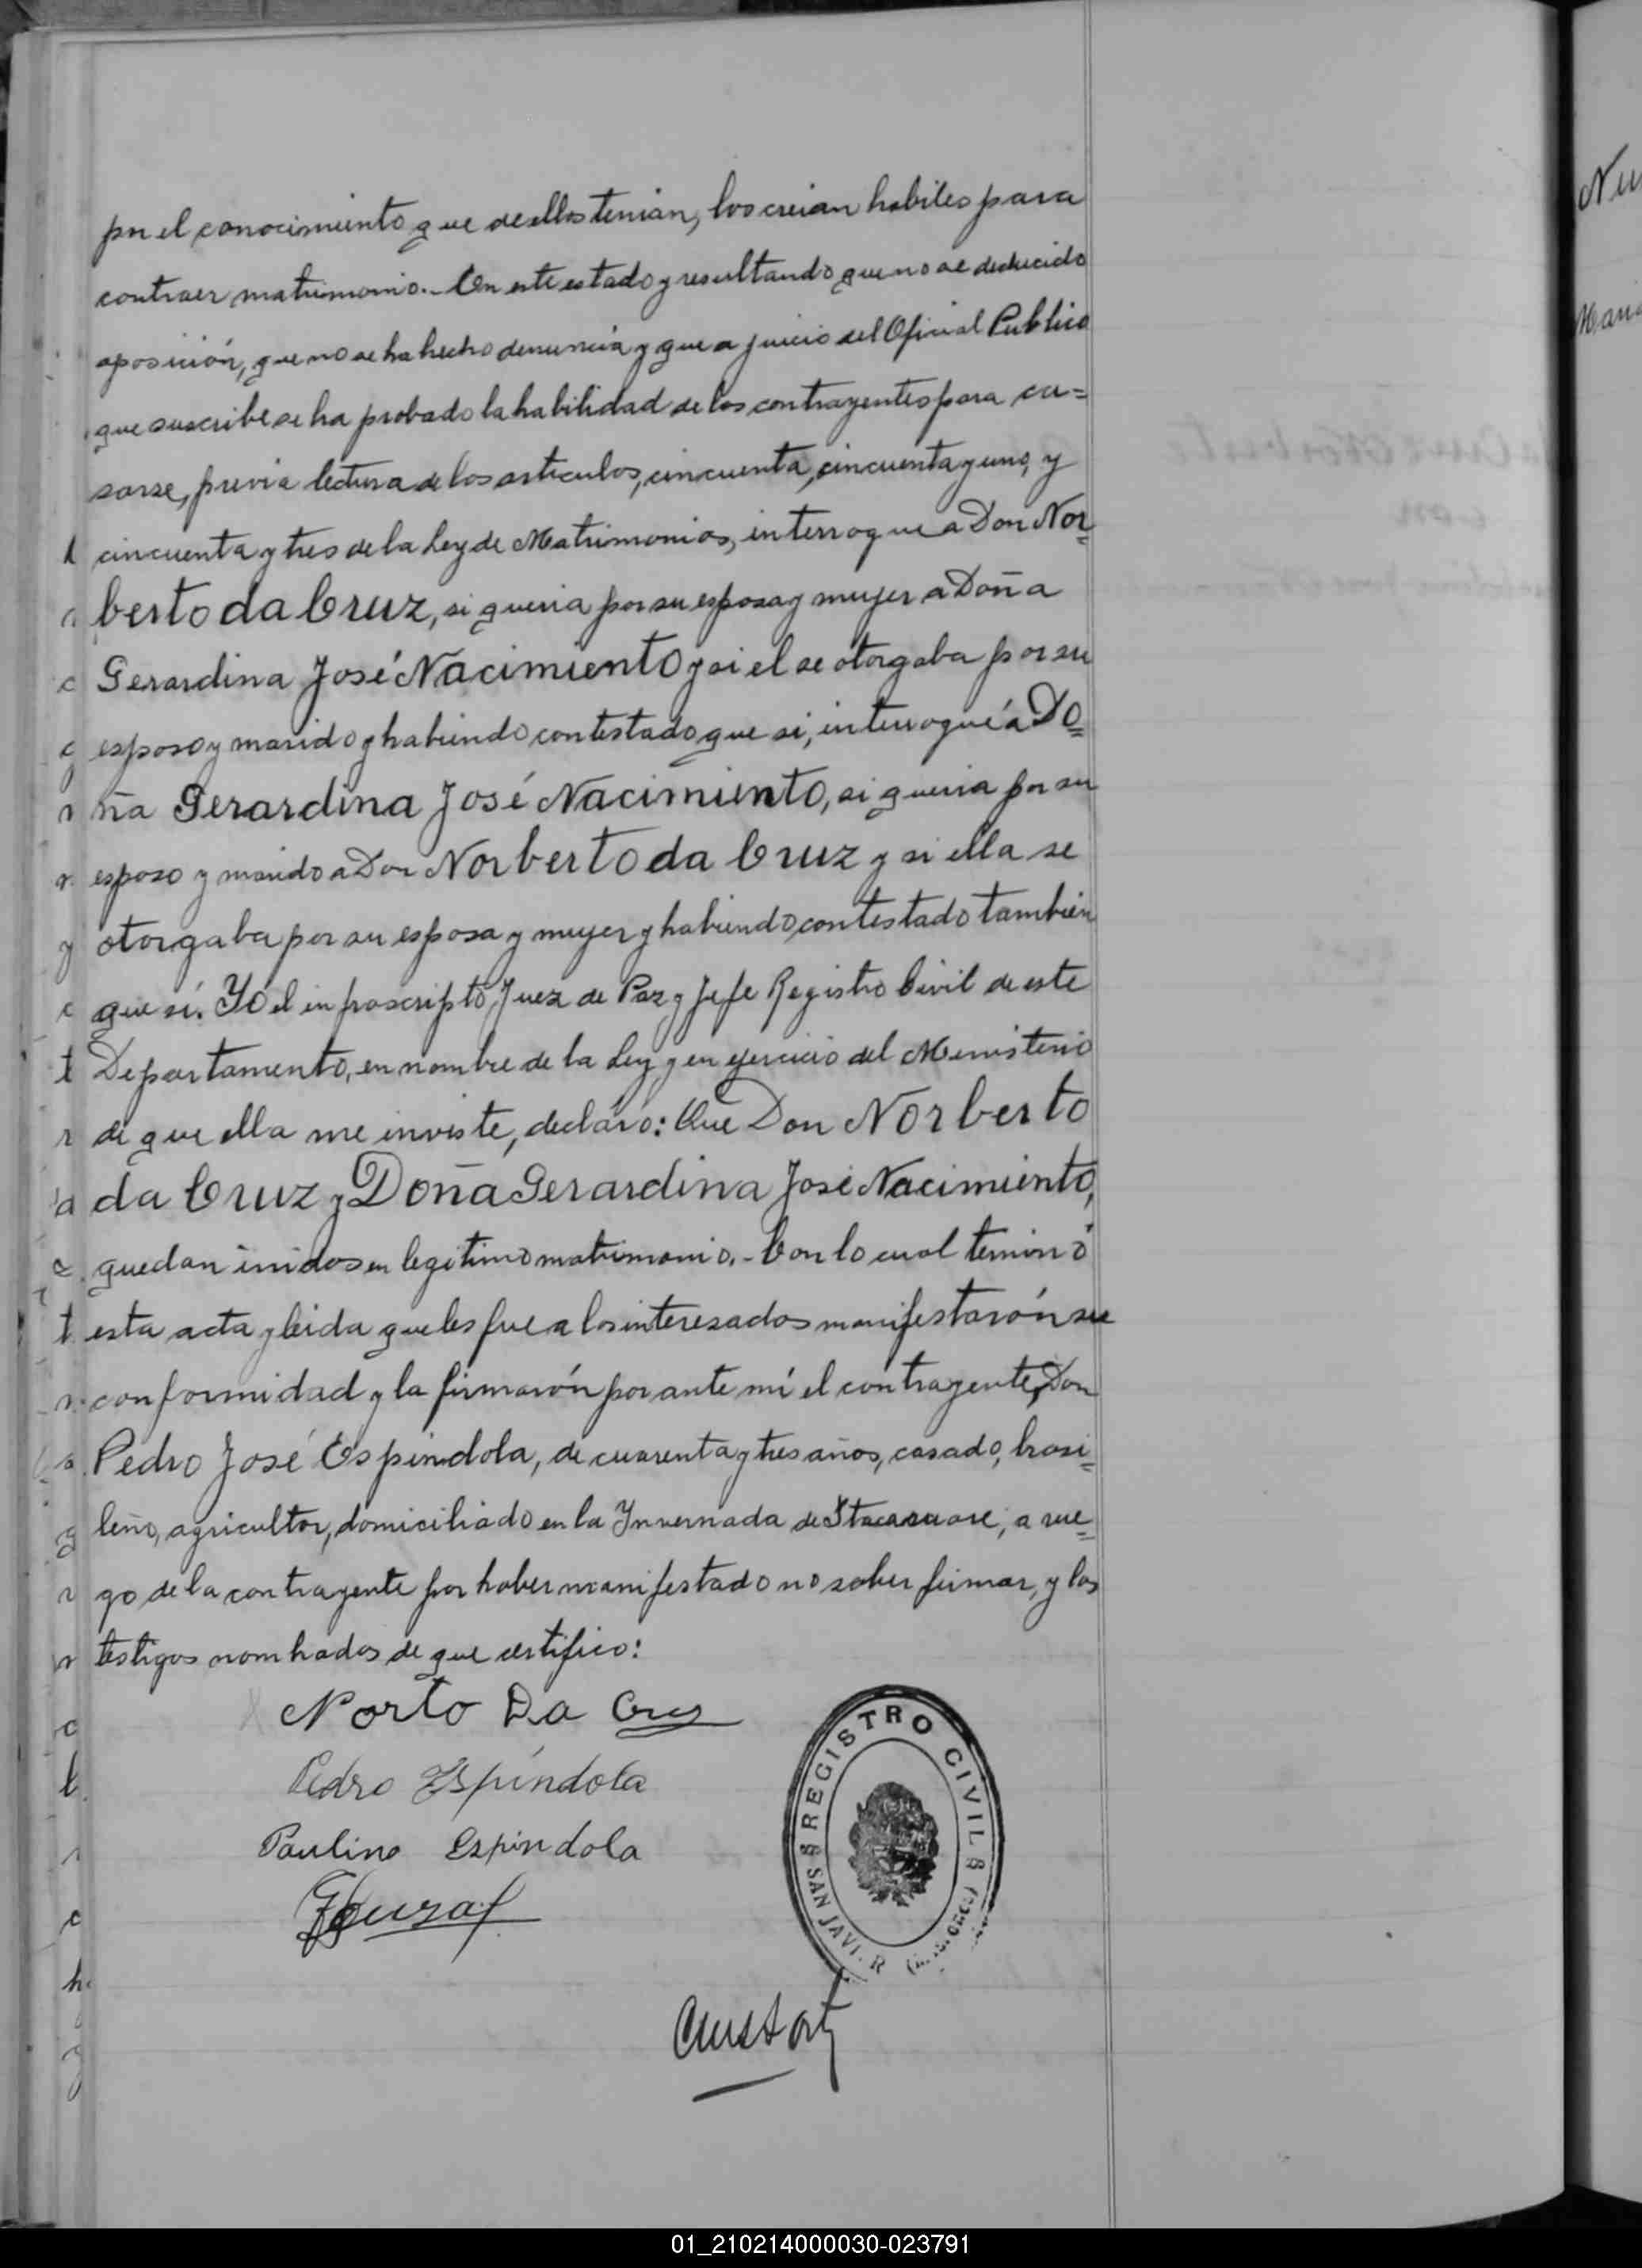 por el conocimiento que de ellos tenian, los creian habiles para
contraer matrimonio.- En este estado y resultando que no se deducido
oposición, que no se ha hecho denuncia y que a juicio del Oficial Publico
que suscribe se ha probado la habilidad de los contrayentes para ca=
sarse, previa lectura de los articulos, cincuenta, cincuenta y uno, y
cincuenta y tres de la Ley de Matrimonios, interrogue a Don Nor=
berto da Cruz, si queria por su esposa y mujer a Doña
Gerardina José Nacimiento y si el se otorgaba por su
esposo y marido y habiendo contestado que si, interrogué a Do=
ña Gerardina José Nacimiento, si queria por su
esposo y marido a Don Norberto da Cruz y si ella se
otorgaba por su esposa y mujer y habiendo contestado también
que sí. Yó el inproscripto Juez de Paz y Jefe Registro Civil de este
Departamento, en nombre de la Ley y en ejercicio del Ministerio
de que ella me inviste, declaro: Que Don Norberto
da Cruz y Doña Gerardina José Nacimiento,
quedan unidos en legitimo matrimonio.- Con lo cual terminó
esta acta y leida que les fue a los interesados manifestarón su
conformidad y la firmarón por ante mí el contrayente, Don
Pedro José Espindola, de cuarenta y tres años, casado, brasi=
leño, agricultor, domiciliado en la Invernada de Itacaruare, a rue=
go de la contrayente por haber manifestado no saber firmar, y los
testigos nombrados de que certifico:
Norto Da Cruz
Pedro Espindola
Paulino Espindola
REGISTRO CIVIL
SAN JAVIER
Nu
Mari
01_210214000030-023791